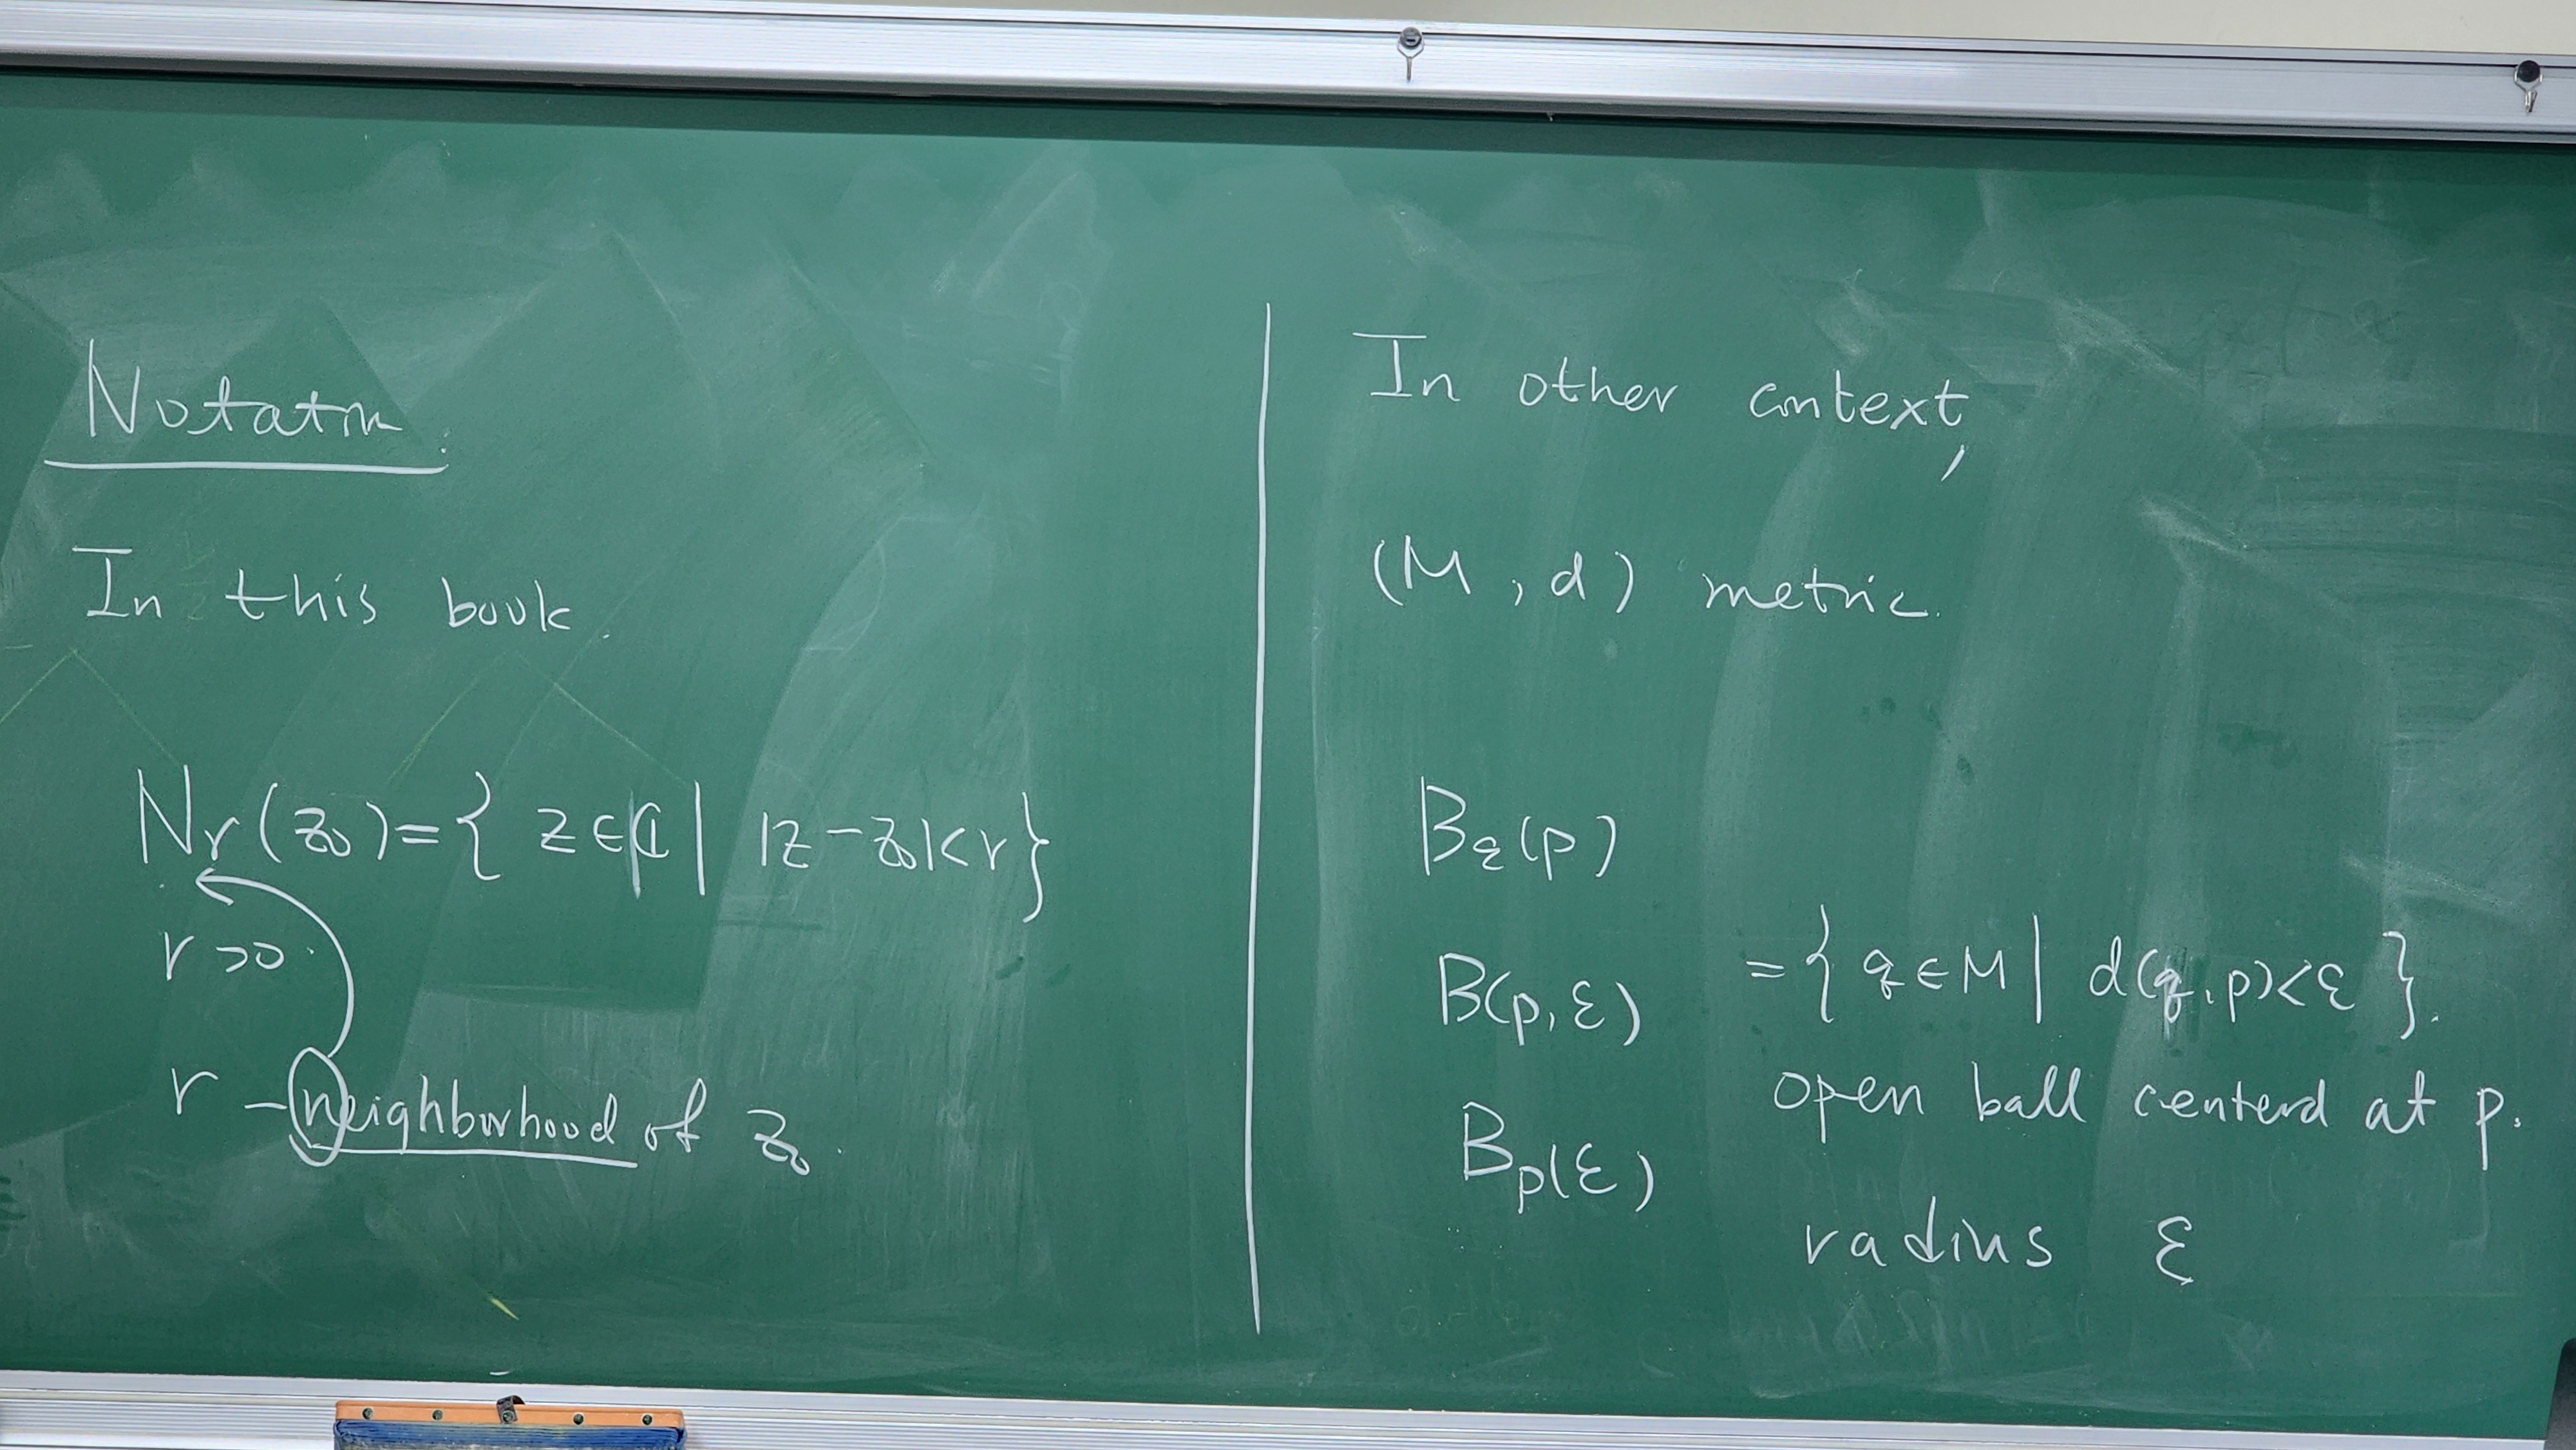 Notation:
In this book.
Nr(z₀)={ z∈ℂ | |z-z₀|<r}
r>0.
r-neighborhood of z₀.
In other context,
(M, d) metric.
Bε(p)
B(p, ε) ={ q∈M | d(q,p)<ε }.
open ball centerd at p.
Bp(ε)
radius ε